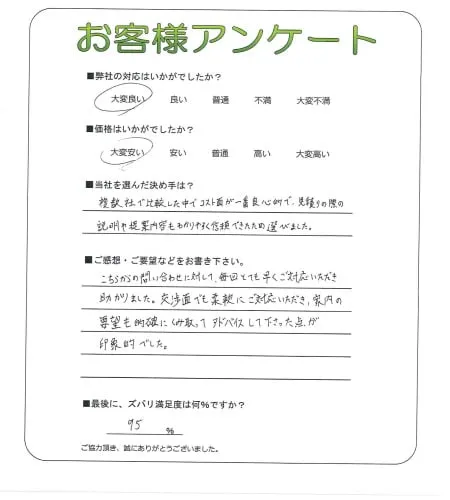 お客様アンケート
■弊社の対応はいかがでしたか?
大変良い 良い 普通 不満 大変不満
■価格はいかがでしたか?
大変安い 安い 普通 高い 大変高い
■当社を選んだ決め手は?
複数社で比較した中でコスト面が一番良心的で、見積りの際の
説明や提案内容もわかりやすく信頼できたため選びました。
■ご感想・ご要望などをお書き下さい。
こちらからの問い合わせに対して、毎回とても早くご対応いただき
助かりました。交渉面でも柔軟にご対応いただき、案内の
要望も的確にくみ取って アドバイスして下さった点が
印象的でした。
■最後に、ズバリ満足度は何%ですか?
95 %
ご協力頂き、誠にありがとうございました。